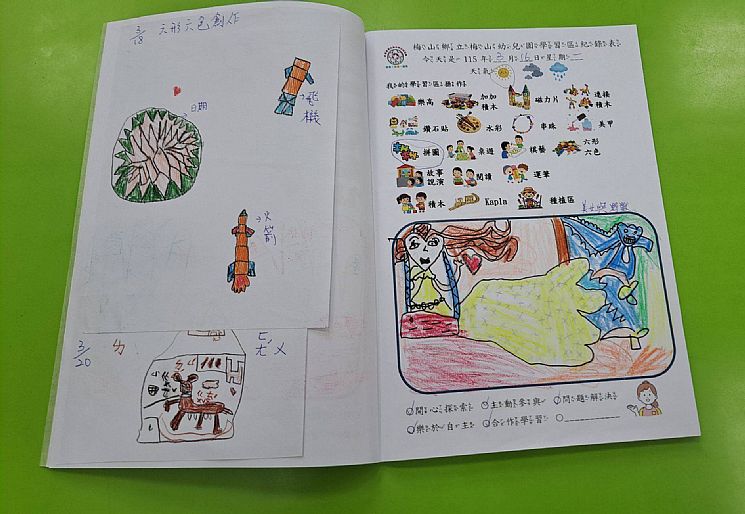 3/3 六形六色創作
日期
飛機
火箭
3/20 ㄉ
梅山鄉立梅山幼兒園學習區紀錄表
今天是 115 年 3 月 16 日星期二
天氣
我的學習區操作
樂高 加加積木 磁力片 連接積木
鑽石貼 水彩 串珠 美甲
拼圖 桌遊 棋藝 六形六色
故事說演 閱讀 運筆
積木 Kapla 種植區
美女與野獸
開心探索 主動參與 問題解決
樂於自主 合作學習